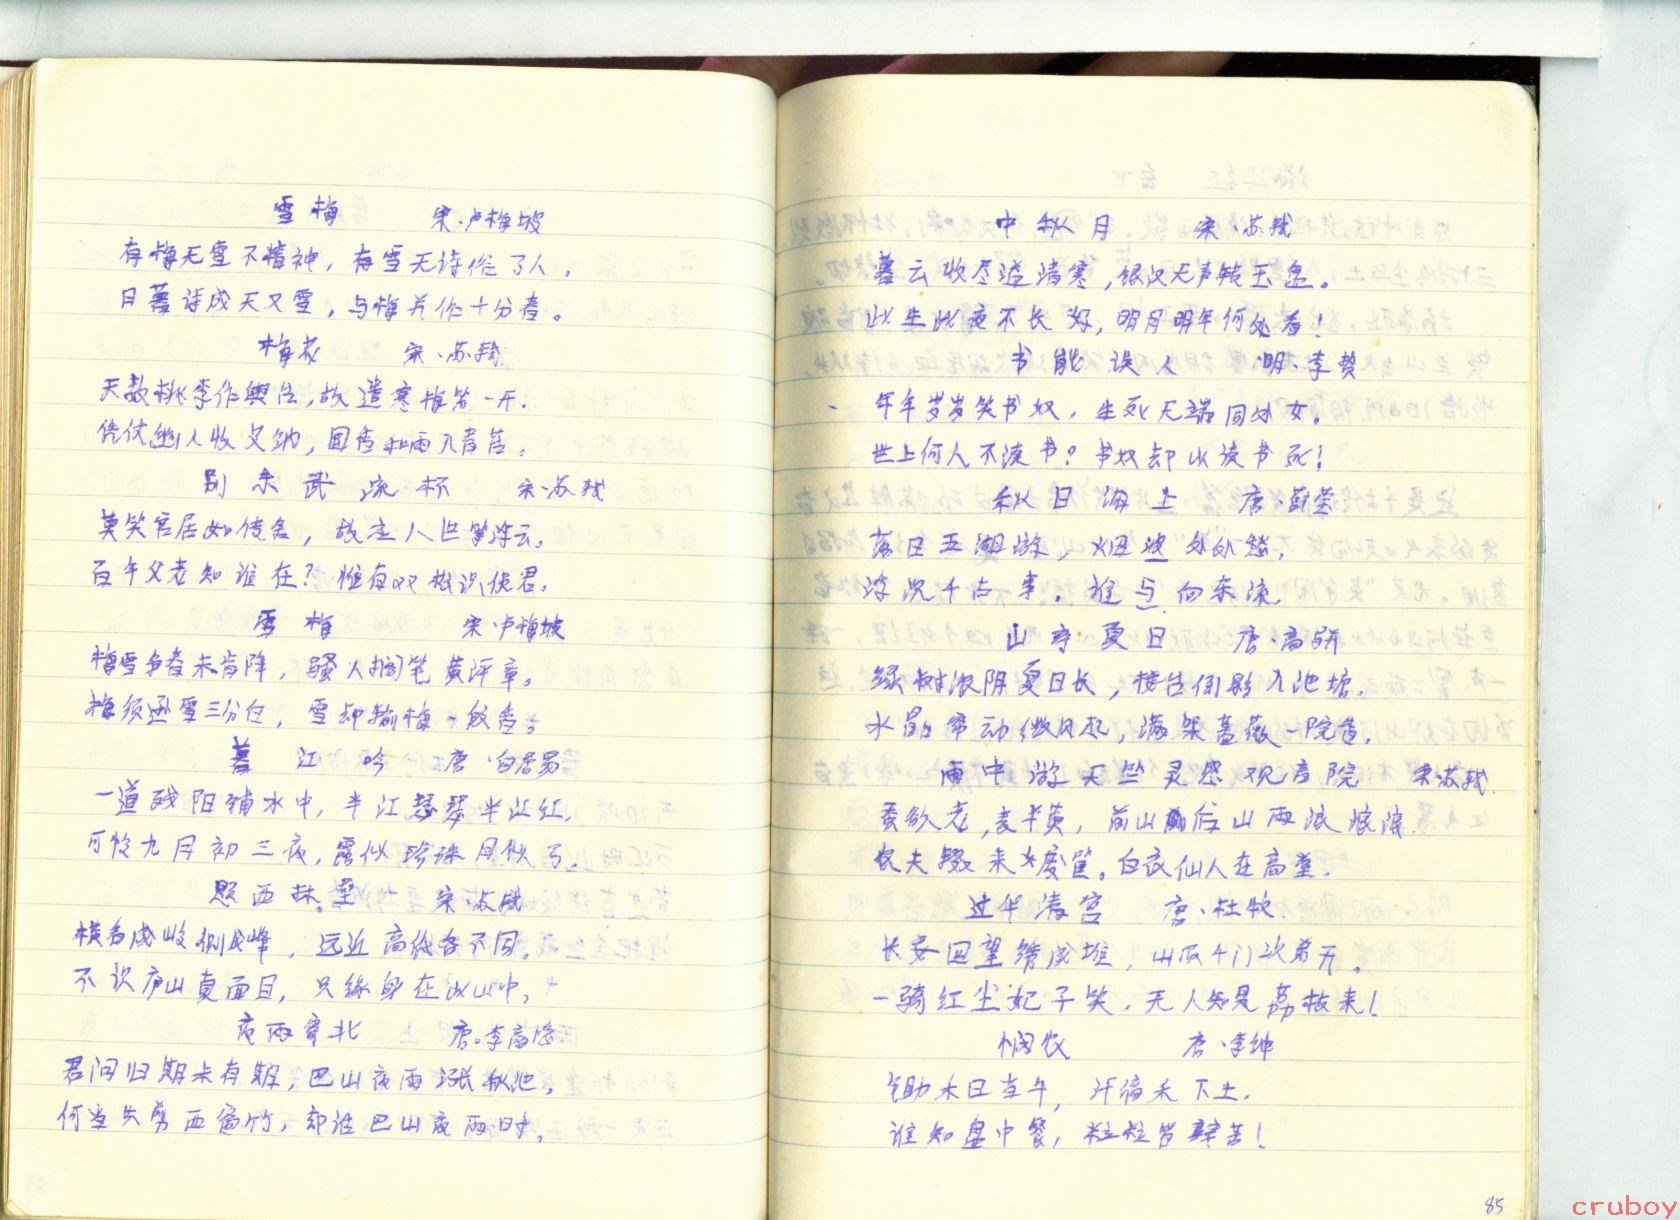 雪梅 宋·卢梅坡
有梅无雪不精神，有雪无诗俗了人。
日暮诗成天又雪，与梅并作十分春。
梅花 宋·苏轼
天教桃李作舆台，故遣寒梅第一开.
凭仗幽人收艾纳，国香和雨入青苔.
别东武流杯 宋·苏轼
莫笑官居如传舍，故应人世等浮云。
百年父老知谁在？惟有双松识使君.
雪梅 宋·卢梅坡
梅雪争春未肯降，骚人搁笔费评章。
梅须逊雪三分白，雪却输梅一段香。
暮江吟 唐·白居易
一道残阳铺水中，半江瑟瑟半江红.
可怜九月初三夜，露似珍珠月似弓。
题西林壁 宋·苏轼
横看成岭侧成峰，远近高低各不同。
不识庐山真面目，只缘身在此山中。
夜雨寄北 唐·李商隐
君问归期未有期，巴山夜雨涨秋池。
何当共剪西窗竹，却话巴山夜雨时。
中秋月 宋·苏轼
暮云收尽溢清寒，银汉无声转玉盘。
此生此夜不长好，明月明年何处看！
书能误人 明·李贽
年年岁岁笑书奴，生死无端同处女。
世上何人不读书？书奴却以读书死！
秋日湖上 唐·薛莹
落日五湖游，烟波处处愁.
浮沉千古事。谁与问东流.
山亭夏日 唐·高骈
绿树浓阴夏日长，楼台倒影入池塘.
水晶帘动微风起，满架蔷薇一院香.
雨中游天竺灵感观音院 宋·苏轼.
蚕欲老，麦半黄，前山后山雨浪浪.
农夫辍耒女废筐。白衣仙人在高堂.
过华清宫 唐·杜牧.
长安回望绣成堆，山顶千门次第开.
一骑红尘妃子笑.无人知是荔枝来！
悯农 唐·李绅
锄禾日当午，汗滴禾下土.
谁知盘中餐，粒粒皆辛苦！
85
cruboy